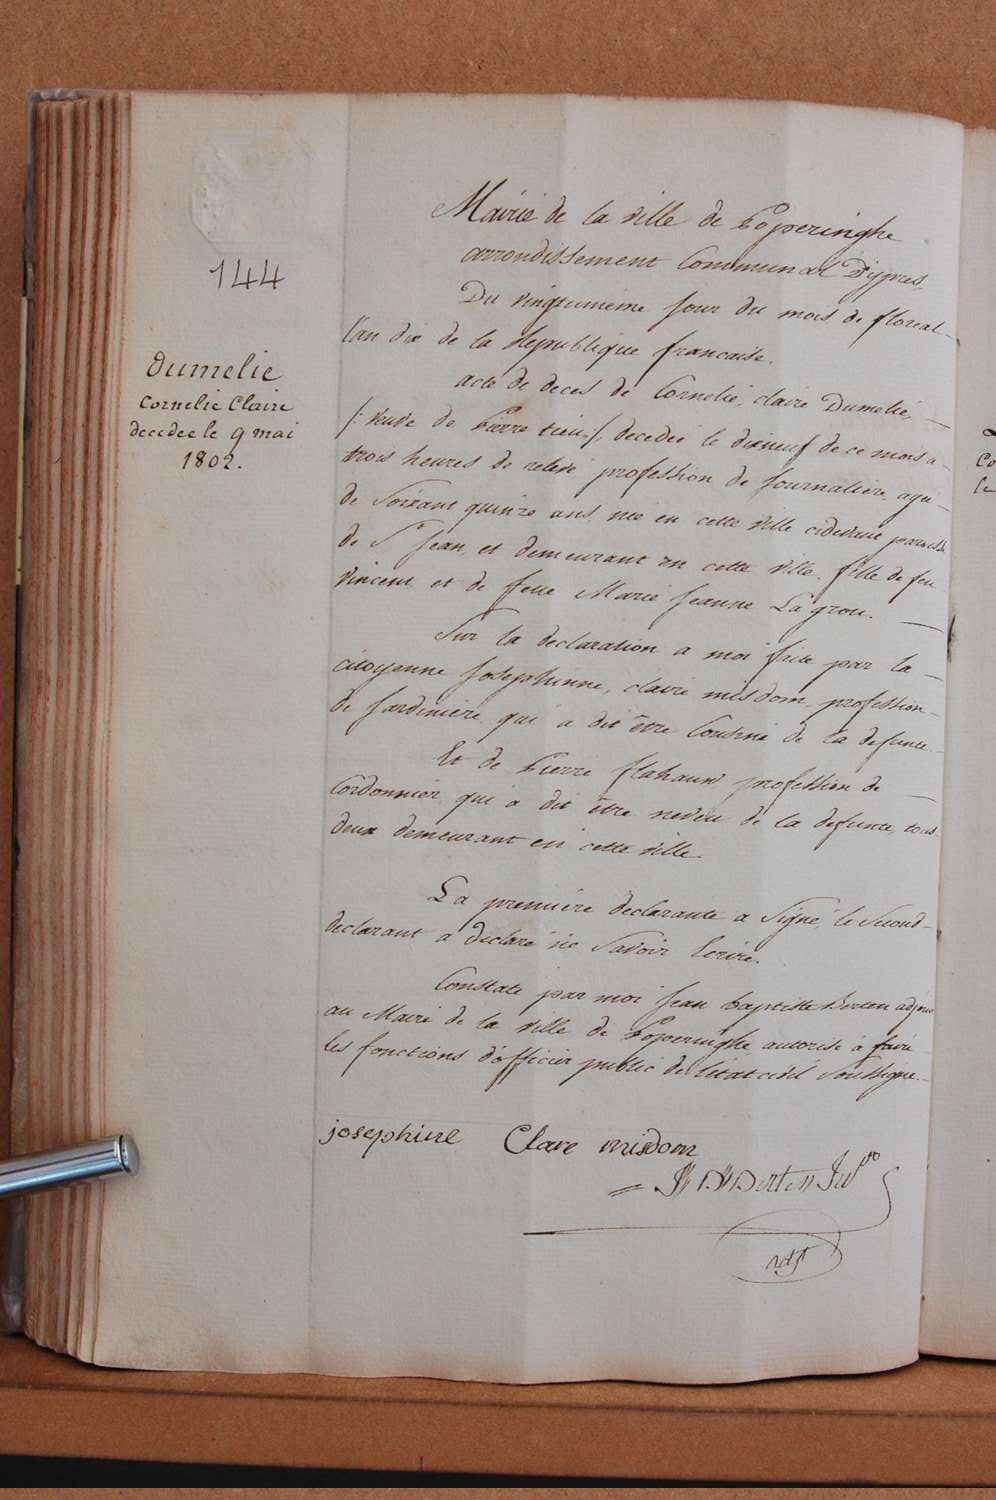 144
Dumelie
Cornelie Claire
decedee le 9 mai
1802.
Mairie de la ville de Poperinghe
arrondissement Communal D'ypres
Du vingtunième jour du mois de floreal
l'an dix de la Republique francaise.
acte de deces de Cornelie, claire Dumelié,
/: veuve de Pierre tieu :/, decedeé le dixneuf de ce mois a
trois heures de relevé profession de journaliere, ageé
de Soixant quinze ans, neé en cette ville cidevant paroisse
de St Jean, et demeurant en cette ville. fille de feu
vincent, et de feue Marie Jeanne Lagrou.
Sur la declaration a moi faite par la
citoyenne Josephinne, claire misdom, profession
de Jardiniere, qui a dit être Cousine de la defunte
Et de Pierre flahauw profession de
Cordonnier, qui a dit être neveu de la defunte, tous
deux demeurant en cette ville.
La première declarante a Signé, le Second
declarant a declaré ne Savoir Ecrire.
Constaté par moi Jean baptiste Berten adjoint
au Maire de la ville de Poperinghe autorisé à faire
les fonctions d'officier public de l'etat civil Soussigné.
josephine Clare misdom
Berten
Co
le